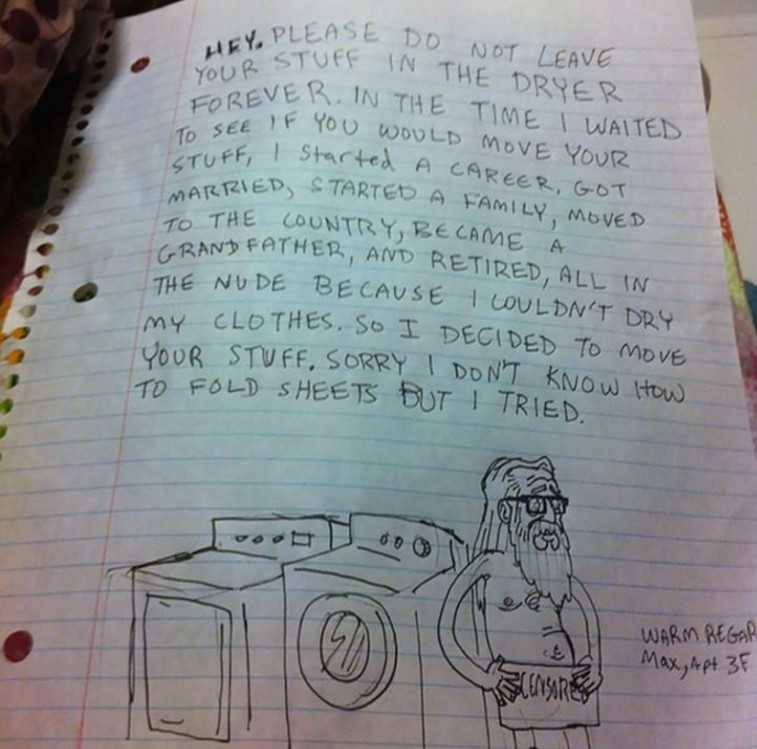 HEY. PLEASE DO NOT LEAVE
YOUR STUFF IN THE DRYER
FOREVER. IN THE TIME I WAITED
TO SEE IF YOU WOULD MOVE YOUR
STUFF, I Started A CAREER, GOT
MARRIED, STARTED A FAMILY, MOVED
TO THE COUNTRY, BECAME A
GRANDFATHER, AND RETIRED, ALL IN
THE NUDE BECAUSE I COULDN'T DRY
MY CLOTHES. SO I DECIDED TO MOVE
YOUR STUFF. SORRY I DON'T KNOW HOW
TO FOLD SHEETS BUT I TRIED.
WARM REGAR
Max, Apt 3F
CENSORED